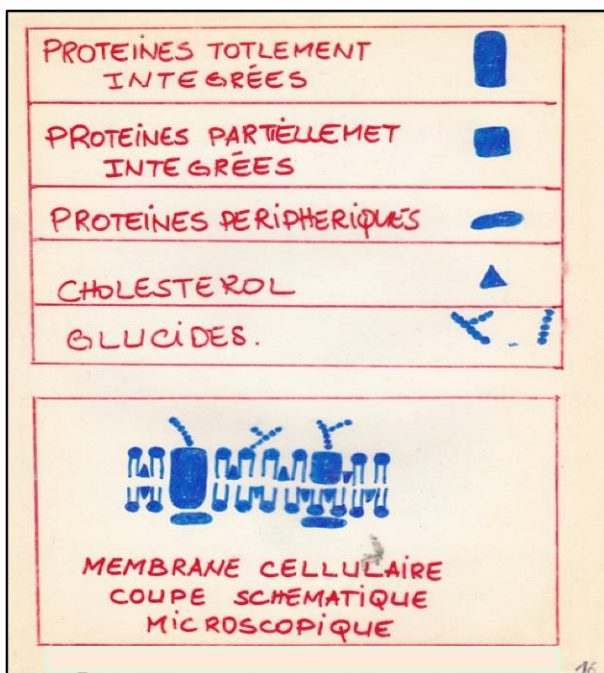 PROTEINES TOTLEMENT
INTEGRÉES
PROTEINES PARTIELLEMET
INTEGRÉES
PROTEINES PERIPHERIQUES
CHOLESTEROL
GLUCIDES.
MEMBRANE CELLULAIRE
COUPE SCHEMATIQUE
MICROSCOPIQUE
16